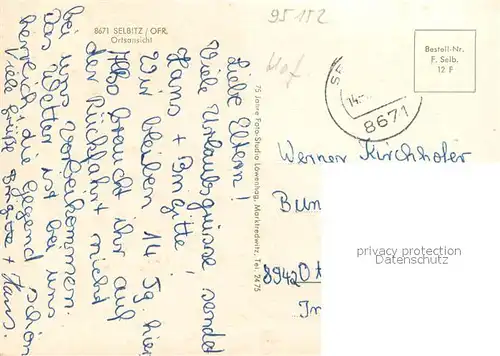 8671 SELBITZ / OFR.
Ortsansicht
95152
Hof
Liebe Eltern!
Viele Urlaubsgrüsse sendet
Hans + Brigitte!
Wir bleiben 14 Tg. hier
Also braucht ihr auf
der Rückfahrt nicht
bei uns vorbeikommen.
Das Wetter ist bei uns
herrlich, die Gegend schön
Viele Grüße Brigitte + Hans.
75 Jahre Foto-Studio Löwenhag, Marktredwitz, Tel. 2475
Bestell-Nr.
F. Selb.
12 F
14.-
8671
Werner Kirchhofer
Bun
8942 O
In
privacy protection
Datenschutz